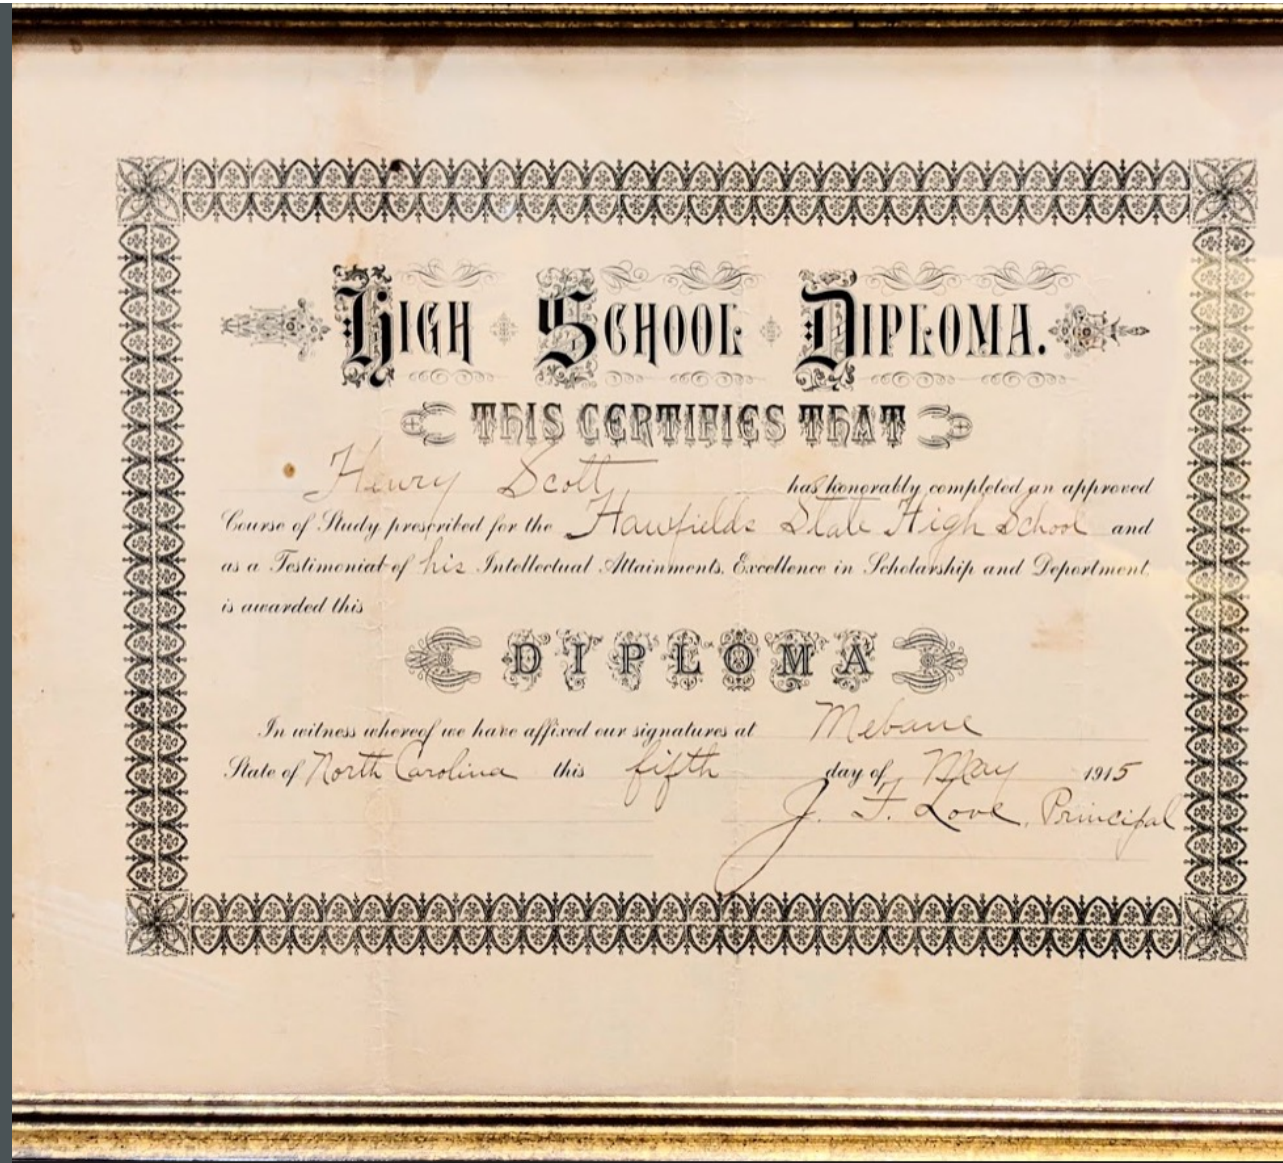 HIGH SCHOOL DIPLOMA.
THIS CERTIFIES THAT
Henry Scott has honorably completed an approved
Course of Study prescribed for the Hawfields State High School and
as a Testimonial of his Intellectual Attainments, Excellence in Scholarship and Deportment,
is awarded this
DIPLOMA
In witness whereof we have affixed our signatures at Mebane
State of North Carolina this fifth day of May 1915
J. F. Love, Principal